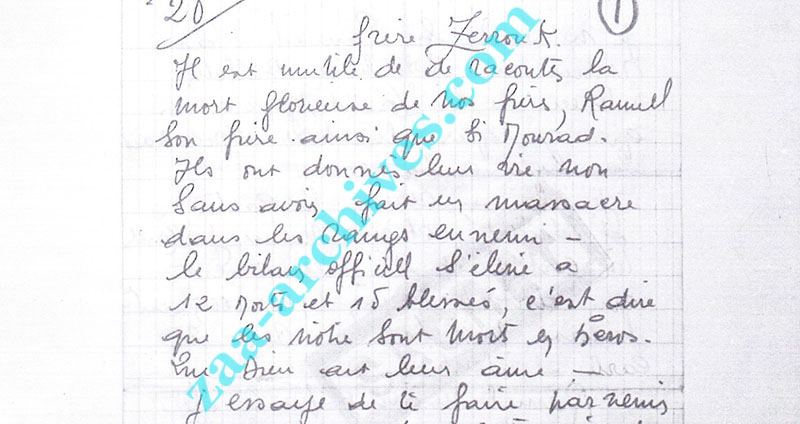 20
1
frère Zerrouk.
Il est inutile de te raconter la
mort glorieuse de nos frères, Ramell
son frère ainsi que Si Mourad.
Ils ont donnés leur vie non
sans avoir fait un massacre
dans les rangs ennemi -
le bilan officiell s'élève a
12 morts et 15 blessés, c'est dire
que les nôtre sont morts en héros.
Que Dieu ait leur âme -
J'essaye de te faire parvenir
zaa-archives.com